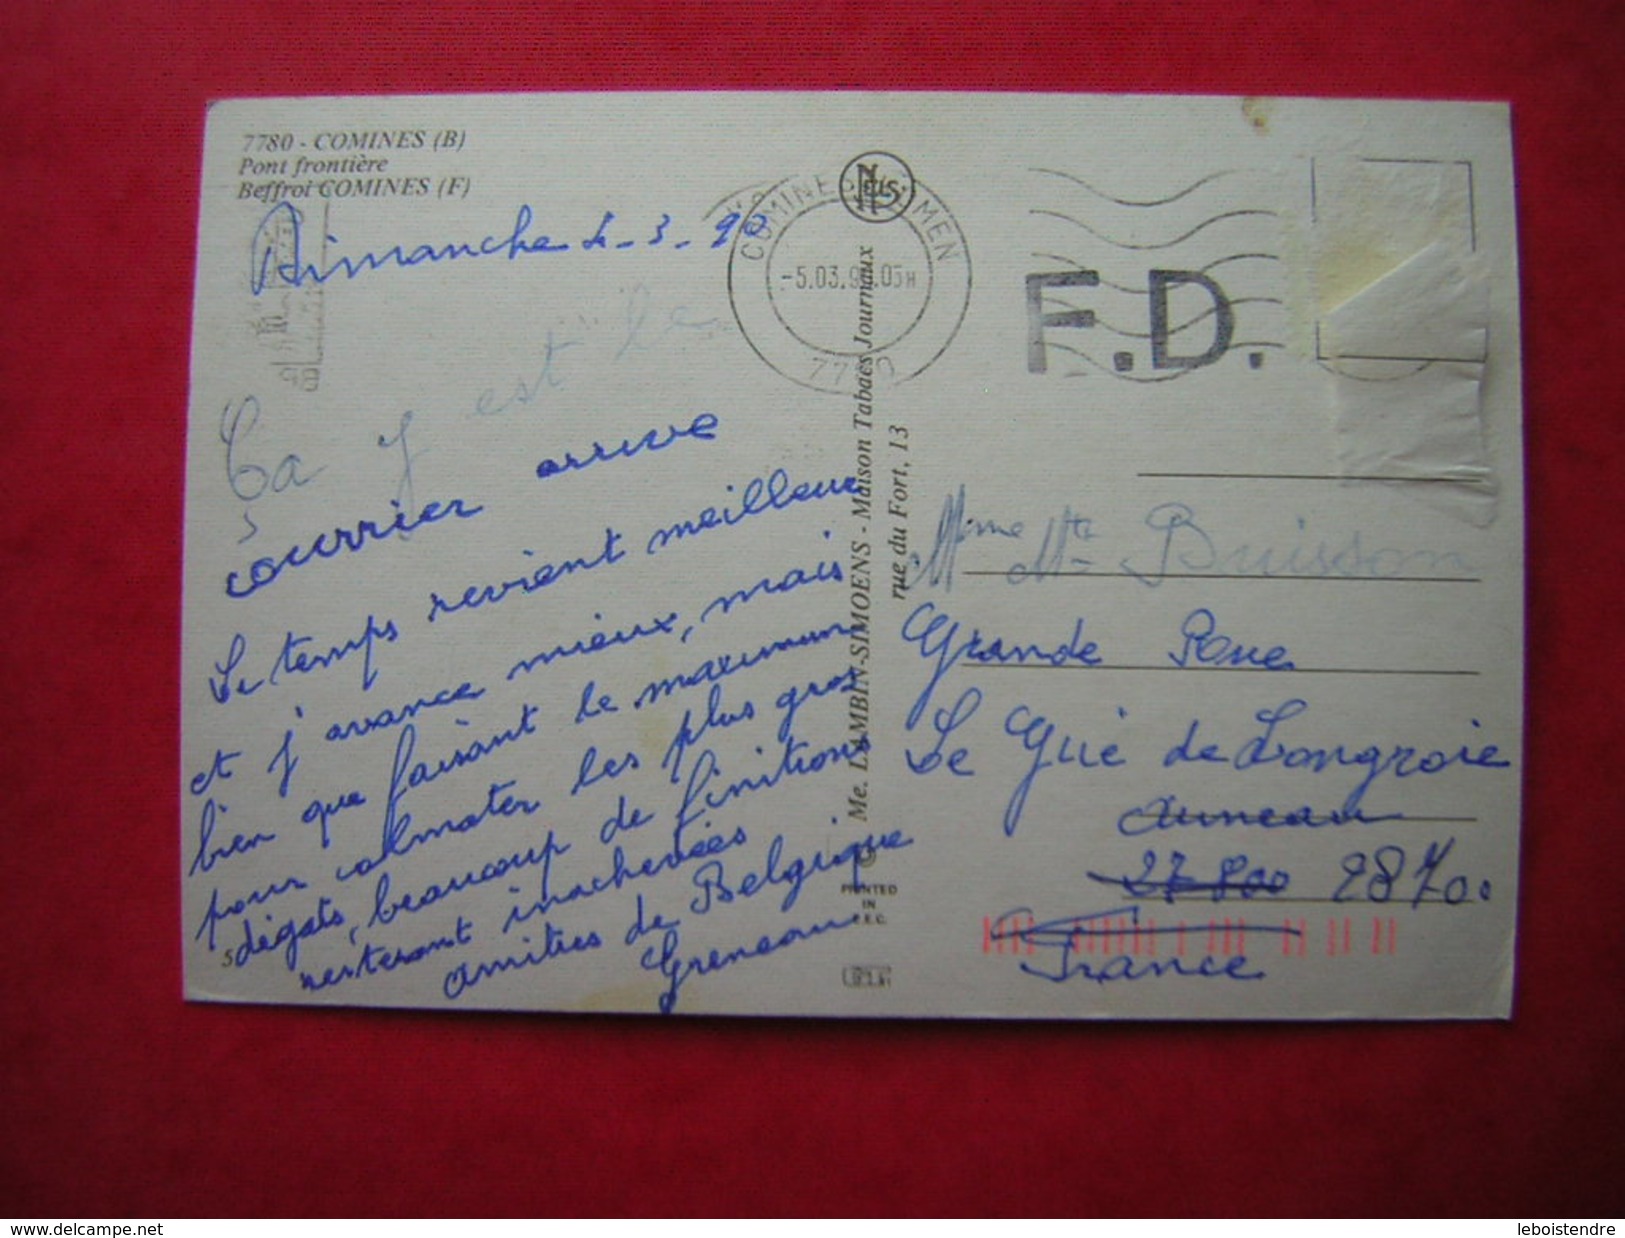 7780 - COMINES (B)
Pont frontière
Beffroi COMINES (F)
Dimanche 4-3-90
Ça y est le
courrier arrive
Le temps revient meilleur
et j'avance mieux, mais
bien que faisant le maximum
pour colmater les plus gros
dégats, beaucoup de finitions
resteront inachevées
amitiés de Belgique
COMINES
-5.03.9 .05H
7780
F.D.
NELS
Me. LAMBIN-SIMOENS - Maison Tabacs Journaux
rue du Fort, 13
PRINTED
IN
E.E.C.
Mme Mte Buisson
Grande Rue
Le Gué de Longroie
Auneau
27800 28700
France
www.delcampe.net
leboistendre